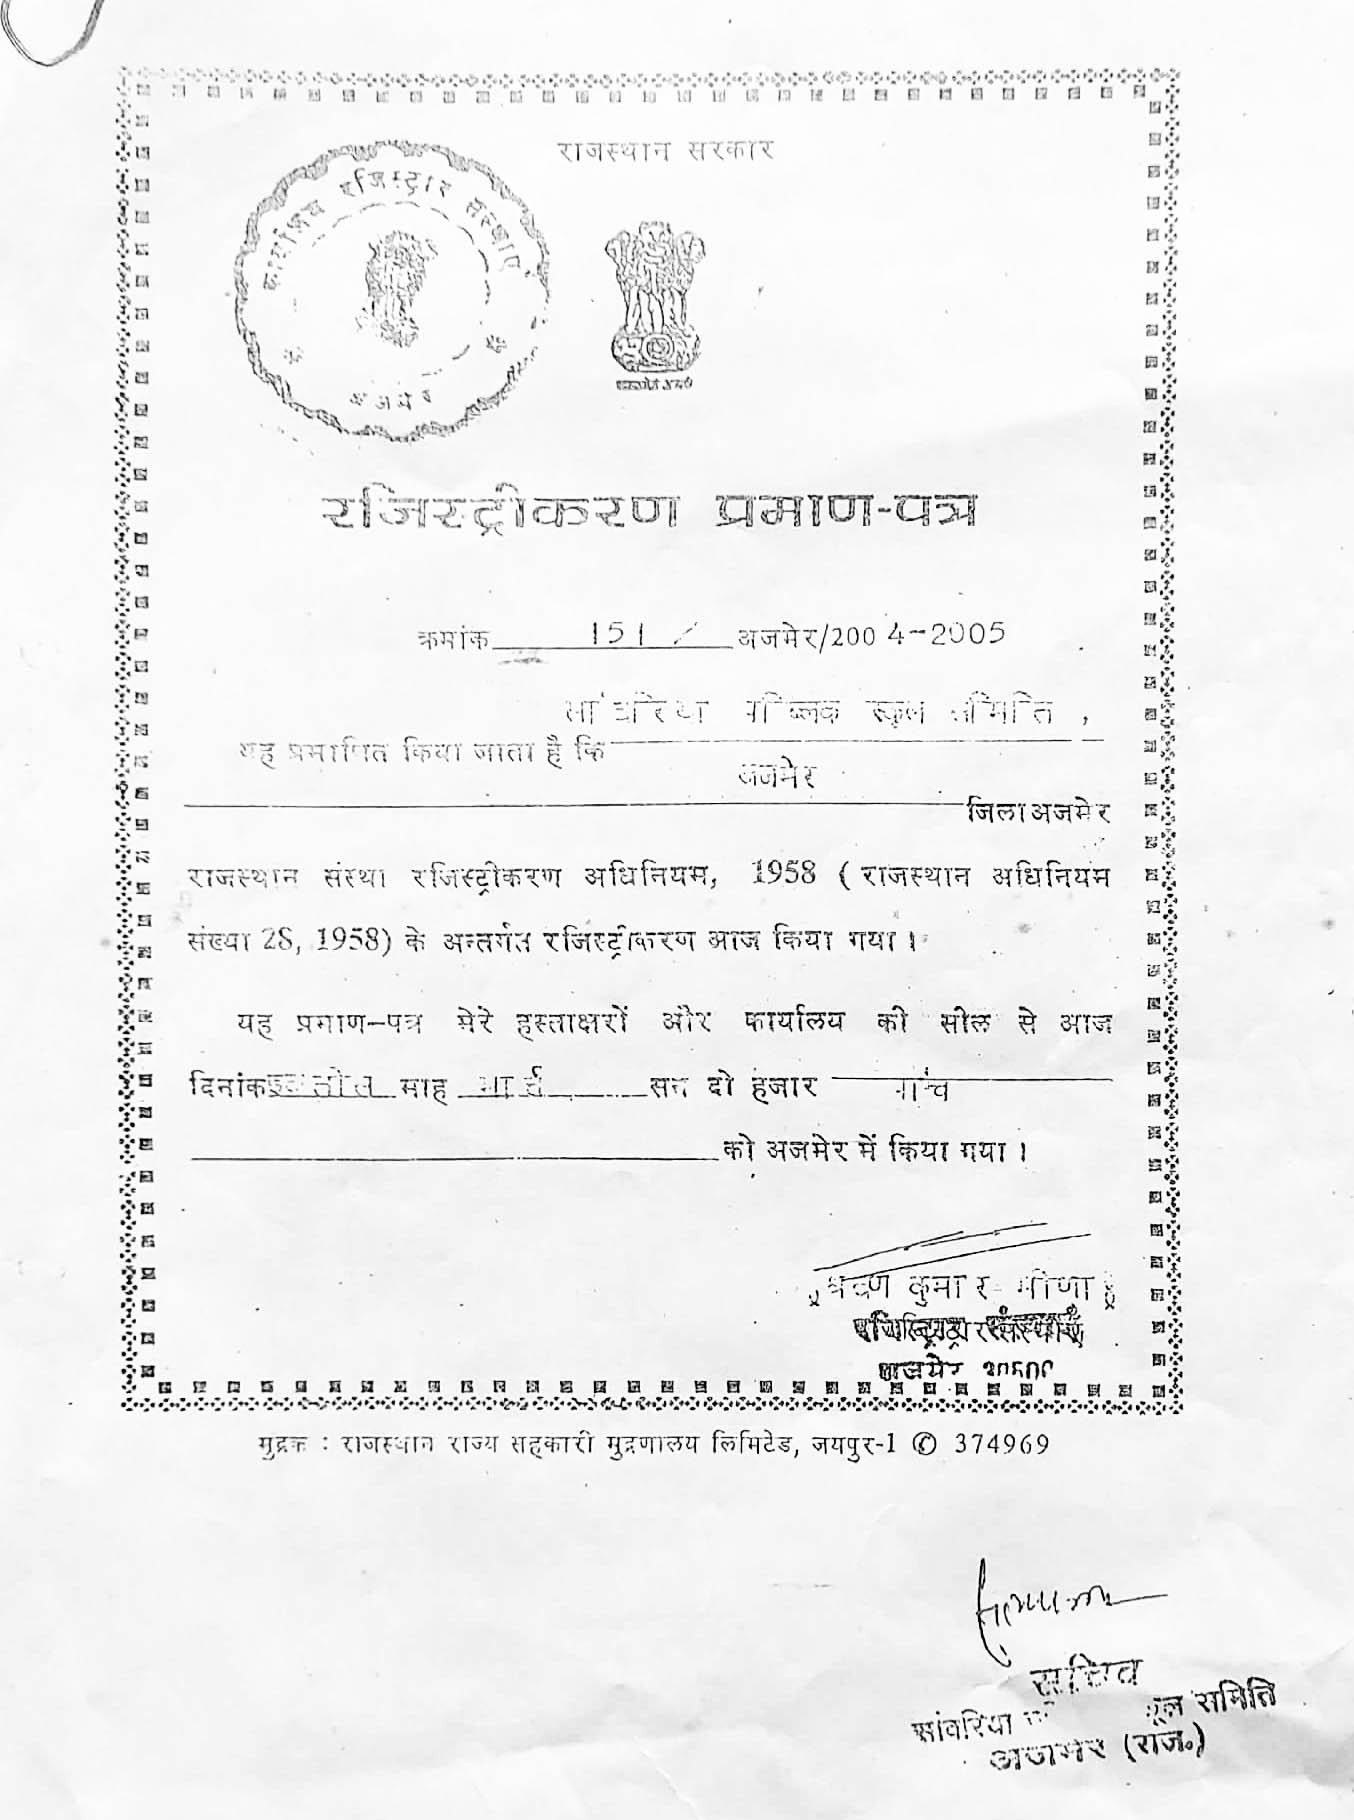 राजस्थान सरकार
कार्यालय रजिस्ट्रार संस्थाएं
अजमेर
रजिस्ट्रीकरण प्रमाण-पत्र
क्रमांक 151 / अजमेर/2004-2005
सांवरिया पब्लिक स्कूल समिति ,
यह प्रमाणित किया जाता है कि
अजमेर
जिला अजमेर
राजस्थान संस्था रजिस्ट्रीकरण अधिनियम, 1958 ( राजस्थान अधिनियम
संख्या 28, 1958) के अन्तर्गत रजिस्ट्रीकरण आज किया गया ।
यह प्रमाण-पत्र मेरे हस्ताक्षरों और कार्यालय की सील से आज
दिनांक इकतीस माह मार्च सन दो हजार पांच
को अजमेर में किया गया ।
श्रवण कुमार मीणा
रजिस्ट्रार संस्थाएँ
अजमेर
मुद्रक : राजस्थान राज्य सहकारी मुद्रणालय लिमिटेड, जयपुर-1 ✆ 374969
सचिव
सांवरिया समिति
अजमेर (राज.)